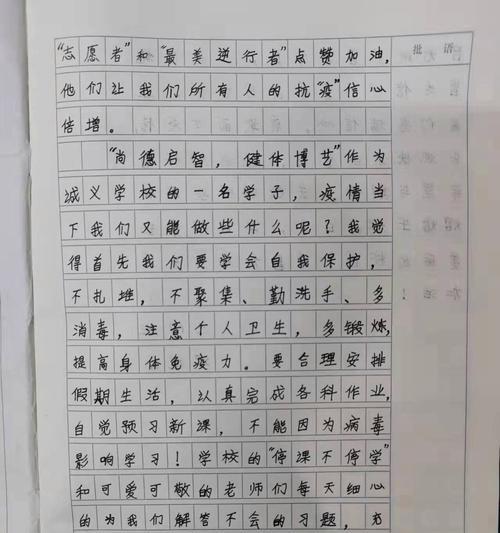 批语
"志愿者"和"最美逆行者"点赞加油,
他们让我们所有人的抗"疫"信心
倍增。
"尚德启智，健体博艺"作为
诚义学校的一名学子，疫情当
下我们又能做些什么呢？我觉
得首先我们要学会自我保护,
不扎堆，不聚集、勤洗手、多
消毒，注意个人卫生，多锻炼,
提高身体免疫力。要合理安排
假期生活，认真完成各科作业,
自觉预习新课，不能因为病毒
影响学习！学校的"停课不停学"
和可爱可敬的老师们每天细心
的为我们解答不会的习题，充